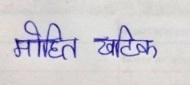 मोहित खटिक